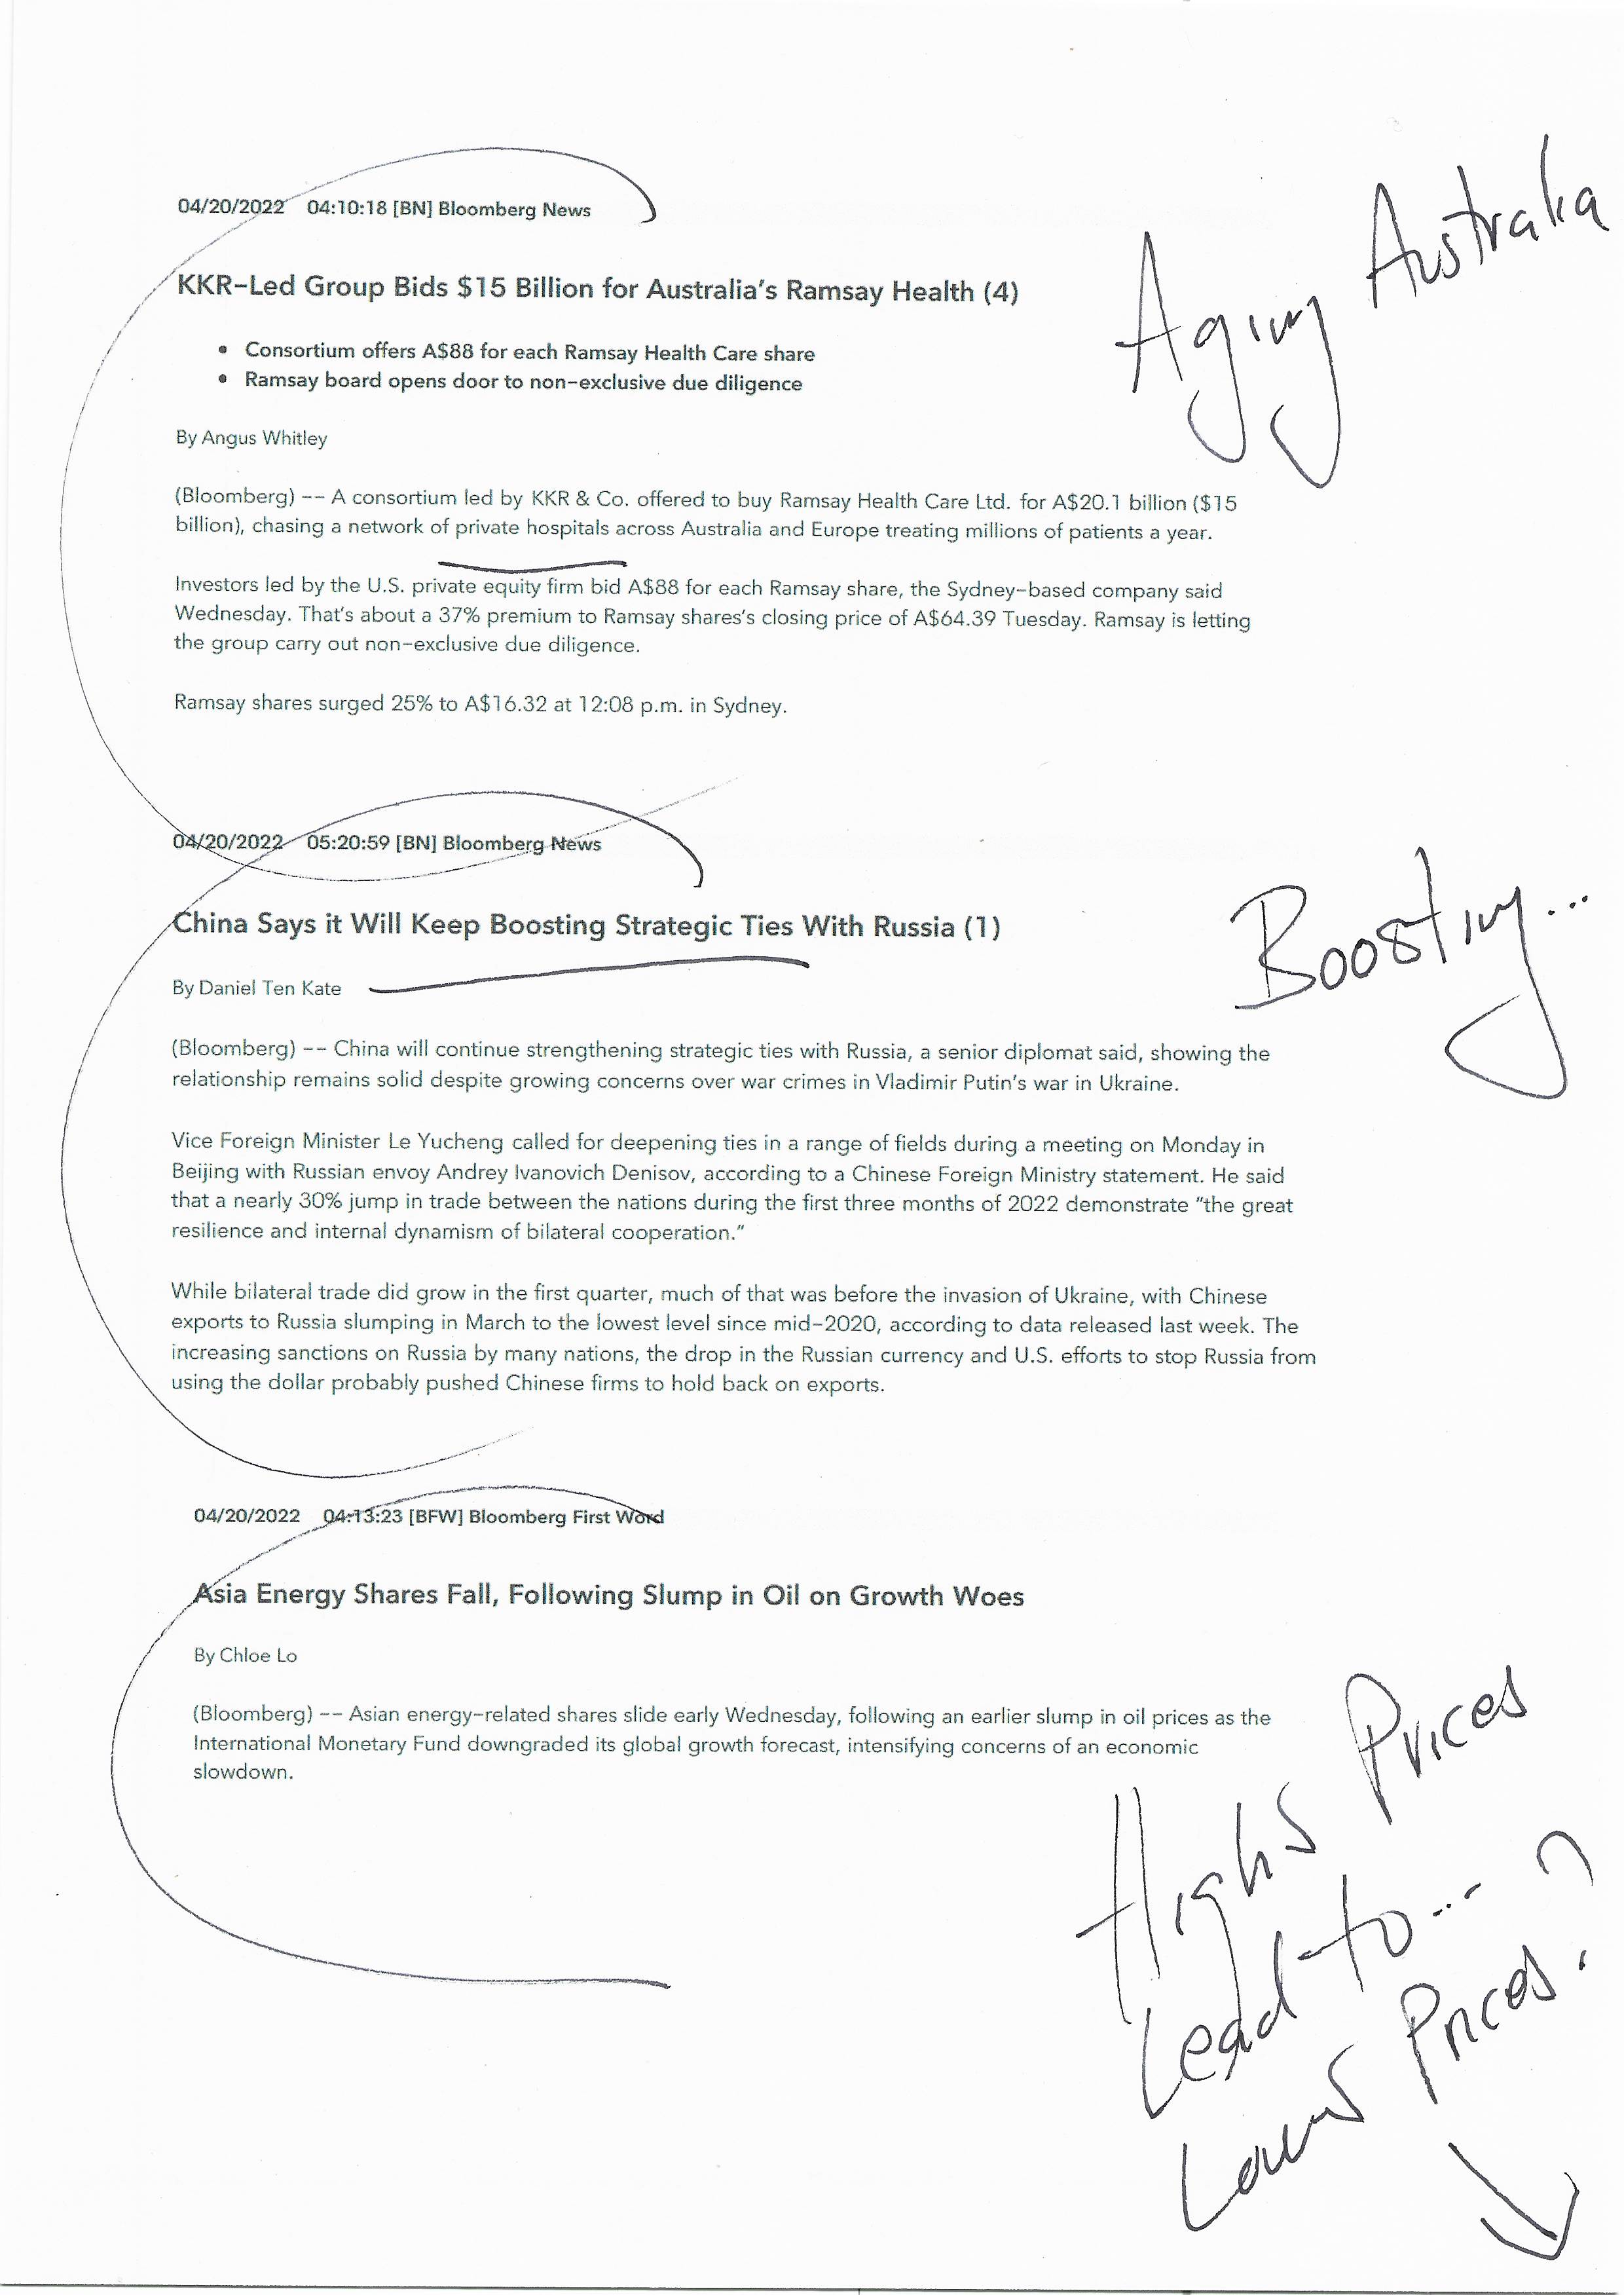 04/20/2022 04:10:18 [BN] Bloomberg News
Aging Australia
KKR-Led Group Bids $15 Billion for Australia's Ramsay Health (4)
• Consortium offers A$88 for each Ramsay Health Care share
• Ramsay board opens door to non-exclusive due diligence
By Angus Whitley
(Bloomberg) -- A consortium led by KKR & Co. offered to buy Ramsay Health Care Ltd. for A$20.1 billion ($15
billion), chasing a network of private hospitals across Australia and Europe treating millions of patients a year.
Investors led by the U.S. private equity firm bid A$88 for each Ramsay share, the Sydney-based company said
Wednesday. That's about a 37% premium to Ramsay shares's closing price of A$64.39 Tuesday. Ramsay is letting
the group carry out non-exclusive due diligence.
Ramsay shares surged 25% to A$16.32 at 12:08 p.m. in Sydney.
04/20/2022 05:20:59 [BN] Bloomberg News
China Says it Will Keep Boosting Strategic Ties With Russia (1)
Boosting...
By Daniel Ten Kate
(Bloomberg) -- China will continue strengthening strategic ties with Russia, a senior diplomat said, showing the
relationship remains solid despite growing concerns over war crimes in Vladimir Putin's war in Ukraine.
Vice Foreign Minister Le Yucheng called for deepening ties in a range of fields during a meeting on Monday in
Beijing with Russian envoy Andrey Ivanovich Denisov, according to a Chinese Foreign Ministry statement. He said
that a nearly 30% jump in trade between the nations during the first three months of 2022 demonstrate "the great
resilience and internal dynamism of bilateral cooperation."
While bilateral trade did grow in the first quarter, much of that was before the invasion of Ukraine, with Chinese
exports to Russia slumping in March to the lowest level since mid-2020, according to data released last week. The
increasing sanctions on Russia by many nations, the drop in the Russian currency and U.S. efforts to stop Russia from
using the dollar probably pushed Chinese firms to hold back on exports.
04/20/2022 04:13:23 [BFW] Bloomberg First Word
Asia Energy Shares Fall, Following Slump in Oil on Growth Woes
By Chloe Lo
(Bloomberg) -- Asian energy-related shares slide early Wednesday, following an earlier slump in oil prices as the
International Monetary Fund downgraded its global growth forecast, intensifying concerns of an economic
slowdown.
Highs Prices
Lead to...
Lower Prices?